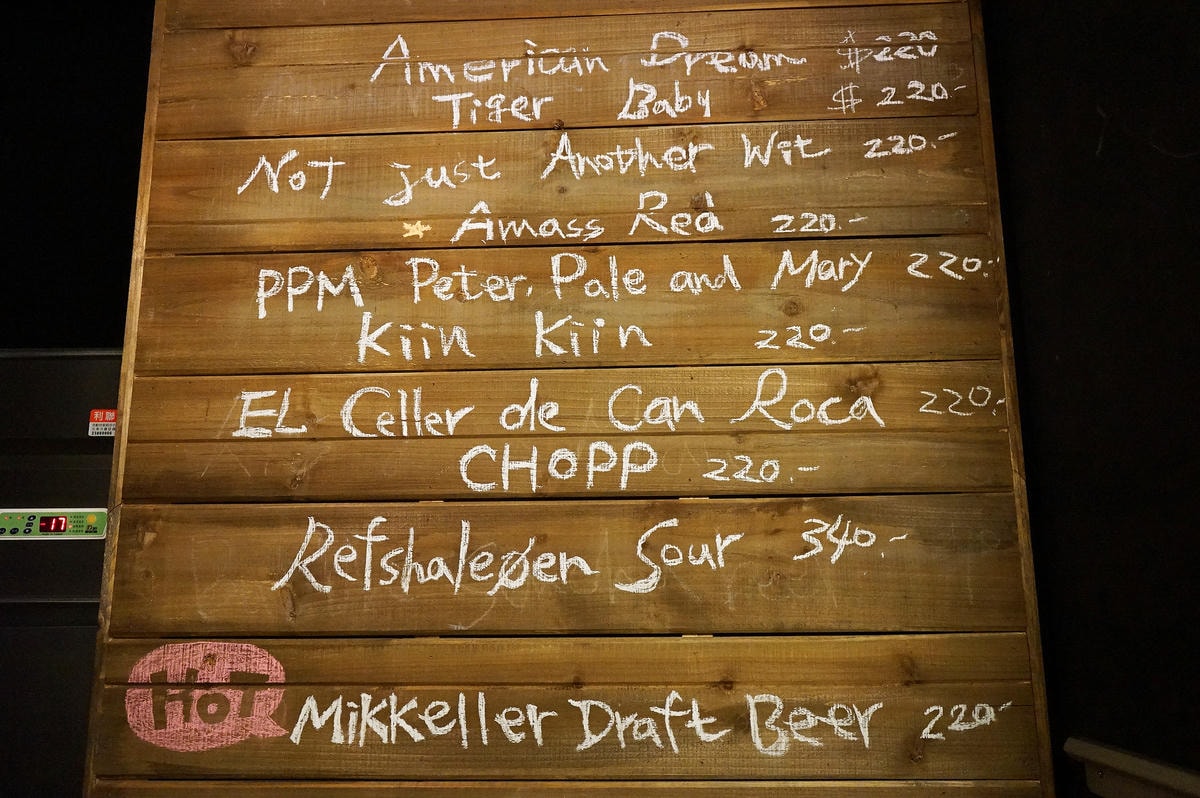 American Dream $220
Tiger Baby $ 220.-
NoT just Another Wit 220.-
Amass Red 220.-
PPM Peter, Pale and Mary 220.-
Kiin Kiin 220.-
EL Celler de Can Roca 220.-
CHOPP 220.-
Refshaleøen Sour 340.-
HOT
Mikkeller Draft Beer 220-
利聯
-17